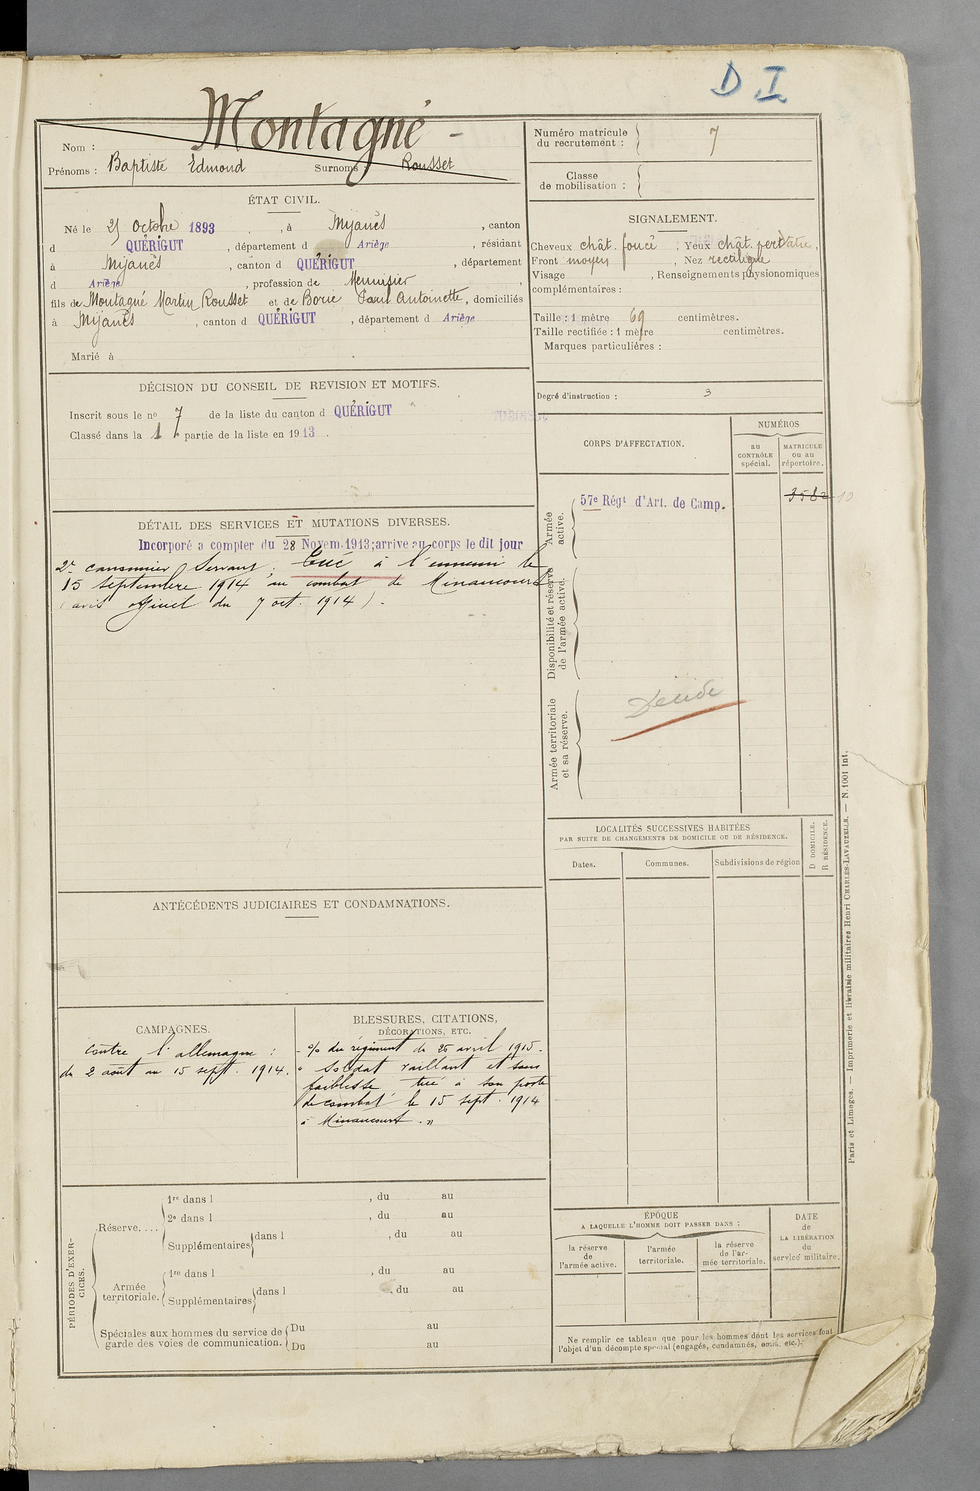 D.I
Montagné -
Nom :
Prénoms : Baptiste Edmond Surnoms Rousset
Numéro matricule du recrutement : 7
Classe de mobilisation :
ÉTAT CIVIL.
Né le 25 octobre 1893, à Mijanès, canton
d QUÉRIGUT, département d Ariège, résidant
à Mijanès, canton d QUÉRIGUT, département
d Ariège, profession de Menuisier,
fils de Montagné Martin Rousset et de Borie Antoinette, domiciliés
à Mijanès, canton d QUÉRIGUT, département d Ariège
Marié à
SIGNALEMENT.
Cheveux chât. foncé. Yeux chât.
Front moyen, Nez rectiligne
Visage, Renseignements physionomiques
complémentaires :
Taille : 1 mètre 69 centimètres.
Taille rectifiée : 1 mètre centimètres.
Marques particulières :
Degré d'instruction : 3
DÉCISION DU CONSEIL DE REVISION ET MOTIFS.
Inscrit sous le nº 7 de la liste du canton d QUÉRIGUT
Classé dans la 1 partie de la liste en 1913.
CORPS D'AFFECTATION.
NUMÉROS
au CONTRÔLE spécial.
MATRICULE ou au répertoire.
Armée active.
57e Régt d'Art. de Camp.
Disponibilité et réserve de l'armée active.
Armée territoriale et sa réserve.
Décédé
DÉTAIL DES SERVICES ET MUTATIONS DIVERSES.
Incorporé a compter du 28 Novem. 1913; arrive au corps le dit jour
2e canonnier Servant. Tué à l'ennemi le
15 septembre 1914 au combat de Minaucourt
(avis officiel du 7 oct. 1914).
LOCALITÉS SUCCESSIVES HABITÉES
PAR SUITE DE CHANGEMENTS DE DOMICILE OU DE RÉSIDENCE.
Dates.
Communes.
Subdivisions de région
D DOMICILE.
R RÉSIDENCE.
ANTÉCÉDENTS JUDICIAIRES ET CONDAMNATIONS.
CAMPAGNES.
Contre l'allemagne :
du 2 août au 15 sept. 1914.
BLESSURES, CITATIONS,
DÉCORATIONS, ETC.
- o/o du régiment du 25 avril 1915 -
" Soldat vaillant et sans
faiblesse tué à son poste
de combat le 15 sept. 1914
à Minaucourt. "
PÉRIODES D'EXERCICES.
Réserve....
1re dans l, du au
2e dans l, du au
Supplémentaires dans l, du au
Armée territoriale.
1re dans l, du au
Supplémentaires dans l, du au
Spéciales aux hommes du service de garde des voies de communication.
Du au
Du au
ÉPOQUE
A LAQUELLE L'HOMME DOIT PASSER DANS :
la réserve de l'armée active.
l'armée territoriale.
la réserve de l'armée territoriale.
DATE de LA LIBÉRATION du service militaire.
Ne remplir ce tableau que pour les hommes dont les services font
l'objet d'un décompte spécial (engagés, condamnés, omis, etc.).
Paris et Limoges. — Imprimerie et librairie militaires Henri CHARLES-LAVAUZELLE. — N. 1001 Int.